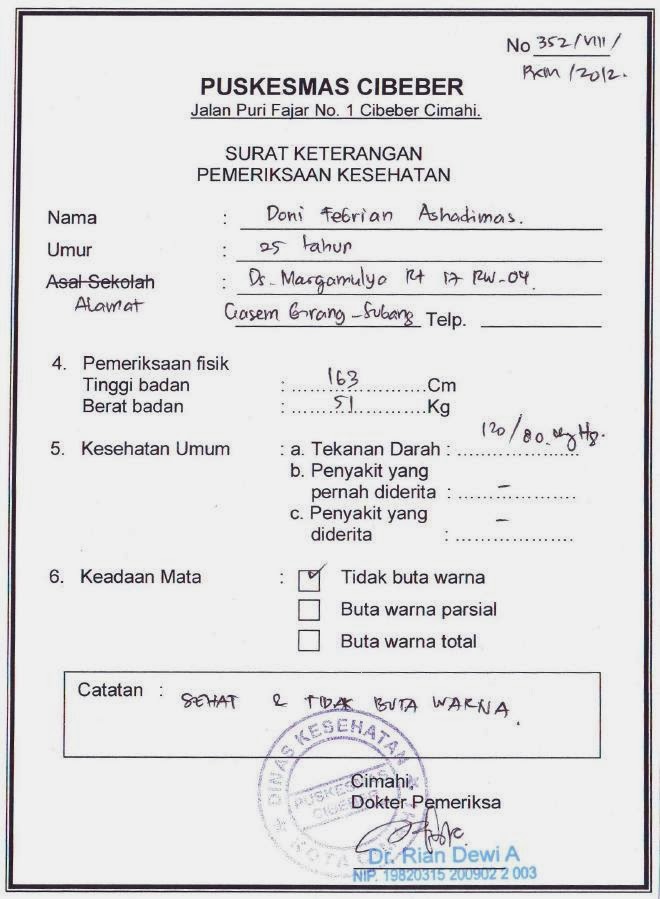 No 352/VIII/
PKM/2012.
PUSKESMAS CIBEBER
Jalan Puri Fajar No. 1 Cibeber Cimahi.
SURAT KETERANGAN
PEMERIKSAAN KESEHATAN
Nama : Doni Febrian Ashadimas.
Umur : 25 tahun
Asal Sekolah : Ds. Margamulyo Rt 17 RW-04.
Alamat Ciasem Girang - Subang Telp.
4. Pemeriksaan fisik
Tinggi badan : 163 Cm
Berat badan : 51 Kg
5. Kesehatan Umum : a. Tekanan Darah : 120/80 mg Hg.
b. Penyakit yang
pernah diderita : -
c. Penyakit yang
diderita : -
6. Keadaan Mata : ✓ Tidak buta warna
Buta warna parsial
Buta warna total
Catatan : SEHAT & TIDAK BUTA WARNA.
DINAS KESEHATAN
PUSKESMAS
CIBEBER
KOTA
Cimahi,
Dokter Pemeriksa
Dr. Rian Dewi A
NIP. 19820315 200902 2 003